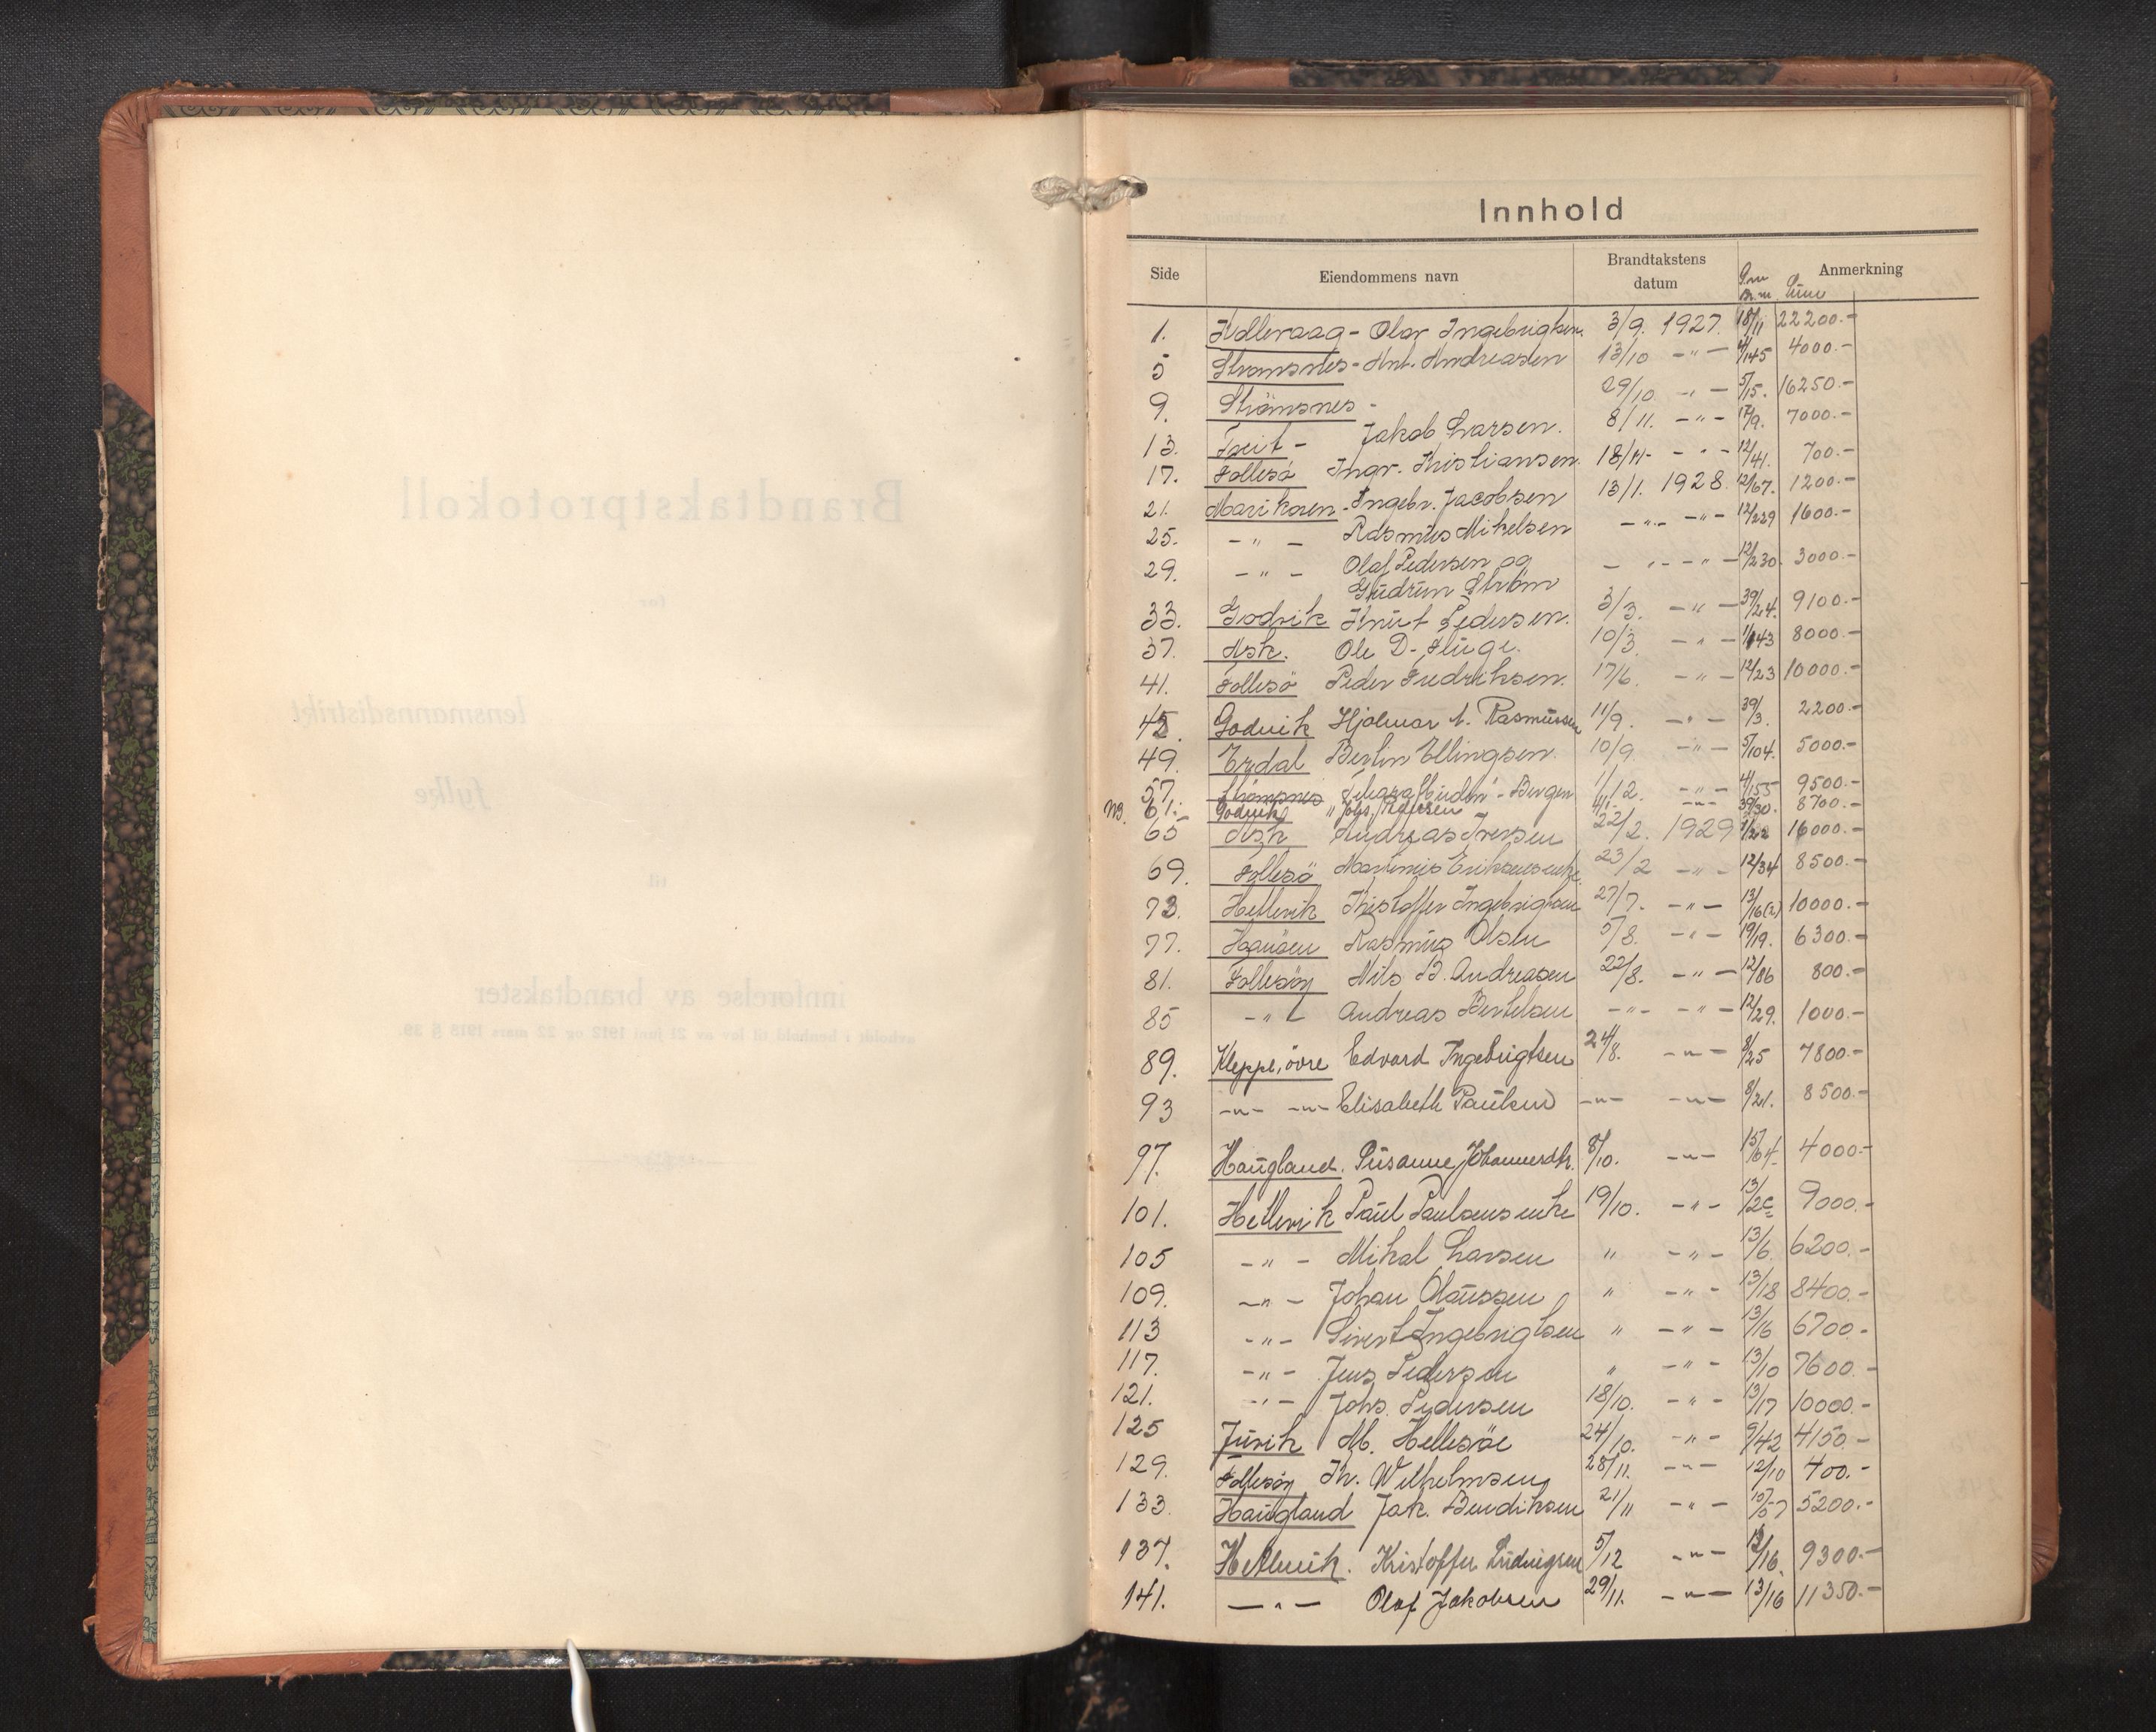 Innhold
Side Eiendommens navn Brandtakstens datum G.nr Br.nr Sum Anmerkning
1. Kolleraag - Olav Ingebrigtsen. 3/9. 1927. 18/11 22200.-
5 Strømsnes - Ant. Andreasen 13/10 -"- 4/145 4000.-
9. Strömsnes - 29/10 -"- 5/15. 16250.-
13. Tveit - Jakob Larsen. 8/11. -"- 17/9. 7000.-
17. Follesö Ingv. Kristiansen. 18/11- -"- 12/41. 700.-
21. Marikoven - Ingebr. Jacobsen 13/1. 1928. 12/67. 1200.-
25. -"- Rasmus Mikelsen -"- -"- 12/229 1600.-
29. -"- Olaf Pedersen og -"- -"- 12/230. 3000.-
Gudrun Ström
33. Godvik Knut Pedersen. 3/3. -"- 39/24. 9100.-
37. Ask. Ole D. Fluge. 10/3. -"- 1/143 8000.-
41. Follesö Peder Fredriksen. 17/6. -"- 12/23 10000.-
45. Godvik Hjalmar A. Rasmussen 11/9. -"- 39/3. 2200.-
49. Erdal Berlin Ellingsen. 10/9 -"- 5/104. 5000.-
57. Strömsnes "Telegrafbuden" - Bergen 1/12. -"- 4/155 9500.-
NB. 61. Godvik Johs. 4/1- -"- 39/30. 8700.-
65 Ask Andreas Iversen 22/2. 1929 1/22 16000.-
69. Follesö Martinus Eriksens enke. 23/2 -"- 12/34 8500.-
73. Hetlevik Kristoffer Ingebrigtsen 27/7. -"- 13/16(2) 10000.-
77. Hanöen Rasmus Olsen 5/8. -"- 19/19. 6300.-
81. Follesöy Nils B. Andreasen 22/8. -"- 12/86 800.-
85 -"- Andreas Bertelsen -"- -"- 12/29. 1000.-
89. Kleppe, övre Edvard Ingebrigtsen 24/8. -"- 8/25 7800.-
93 -"- -"- Elisabeth Paulsen -"- -"- 8/21. 8500.-
97. Haugland. Susanne Johannesdtr. 8/10. -"- 15/64. 4000.-
101. Hetlevik Paul Paulsens enke 19/10. -"- 13/2c 9000.-
105 -"- Mikal Larsen " -"- 13/6. 6200.-
109. -"- Johan Olaussen " -"- 13/18 8400.-
113 -"- Sivert Ingebrigtsen " -"- 13/16 6700.-
117. -"- Jens Pedersen " -"- 13/10 7600.-
121. -"- Johs. Pedersen 18/10. -"- 13/17 10000.-
125 Juvik M. Hellesöe 24/10. -"- 9/42 4150.-
129. Follesöy Th. Wilhelmsen 28/11. -"- 12/10 400.-
133. Haugland Jak. Bendiksen 21/11 -"- 15/57 5200.-
137. Hetlevik. Kristoffer Ludvigsen 5/12 -"- 13/16. 9300.-
141. -"- Olaf Jakobsen 29/11. -"- 13/16 11350.-
Brandtakstprotokoll
for
lensmannsdistrikt
fylke
til
innførelse av brandtakster
avholdt i henhold til lov av 21 juni 1912 og 22 mars 1918 § 29.